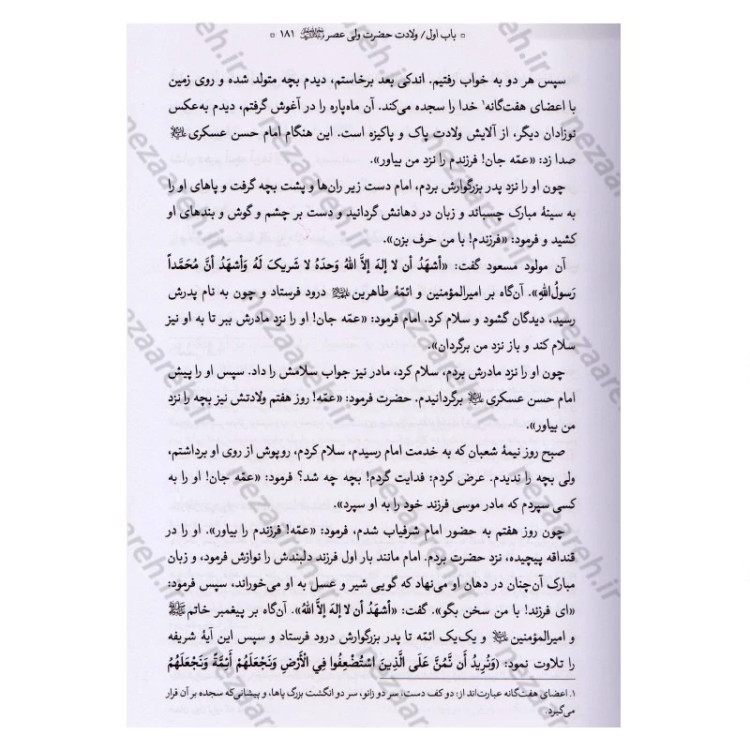 باب اول/ ولادت حضرت ولی عصر ۱۸۱
سپس هر دو به خواب رفتیم. اندکی بعد برخاستم، دیدم بچه متولد شده و روی زمین
با اعضای هفت‌گانه۱ خدا را سجده می‌کند. آن ماه‌پاره را در آغوش گرفتم، دیدم به‌عکس
نوزادان دیگر، از آلایش ولادت پاک و پاکیزه است. این هنگام امام حسن عسکری
صدا زد: «عمّه جان! فرزندم را نزد من بیاور».
چون او را نزد پدر بزرگوارش بردم، امام دست زیر ران‌ها و پشت بچه گرفت و پاهای او را
به سینهٔ مبارک چسباند و زبان در دهانش گردانید و دست بر چشم و گوش و بندهای او
کشید و فرمود: «فرزندم! با من حرف بزن».
آن مولود مسعود گفت: «أشهَدُ أن لا إلهَ إلاَّ اللهُ وَحدَهُ لا شریکَ لَهُ وَأشهَدُ أنَّ مُحَمَّداً
رَسولُ اللهِ». آن‌گاه بر امیرالمؤمنین و ائمّهٔ طاهرین درود فرستاد و چون به نام پدرش
رسید، دیدگان گشود و سلام کرد. امام فرمود: «عمّه جان! او را نزد مادرش ببر تا به او نیز
سلام کند و باز نزد من برگردان».
چون او را نزد مادرش بردم، سلام کرد، مادر نیز جواب سلامش را داد. سپس او را پیش
امام حسن عسکری برگردانیدم. حضرت فرمود: «عمّه! روز هفتم ولادتش نیز بچه را نزد
من بیاور».
صبح روز نیمهٔ شعبان که به خدمت امام رسیدم، سلام کردم، روپوش از روی او برداشتم،
ولی بچه را ندیدم. عرض کردم: فدایت گردم! بچه چه شد؟ فرمود: «عمّه جان! او را به
کسی سپردم که مادر موسی فرزند خود را به او سپرد».
چون روز هفتم به حضور امام شرفیاب شدم، فرمود: «عمّه! فرزندم را بیاور». او را در
قنداقه پیچیده، نزد حضرت بردم. امام مانند بار اول فرزند دلبندش را نوازش فرمود، و زبان
مبارک آن‌چنان در دهان او می‌نهاد که گویی شیر و عسل به او می‌خوراند، سپس فرمود:
«ای فرزند! با من سخن بگو». گفت: «أشهَدُ أن لا إلهَ إلاَّ اللهُ». آن‌گاه بر پیغمبر خاتم
و امیرالمؤمنین و یک‌یک ائمّه تا پدر بزرگوارش درود فرستاد و سپس این آیهٔ شریفه
را تلاوت نمود: (وَنُرِیدُ أَن نَّمُنَّ عَلَی الَّذِینَ اسْتُضْعِفُوا فِي الْأَرْضِ وَنَجْعَلَهُمْ أَئِمَّةً وَنَجْعَلَهُمُ
۱. اعضای هفت‌گانه عبارت‌اند از: دو کف دست، سر دو زانو، سر دو انگشت بزرگ پاها، و پیشانی‌که سجده بر آن قرار
می‌گیرد.
nezaareh.ir